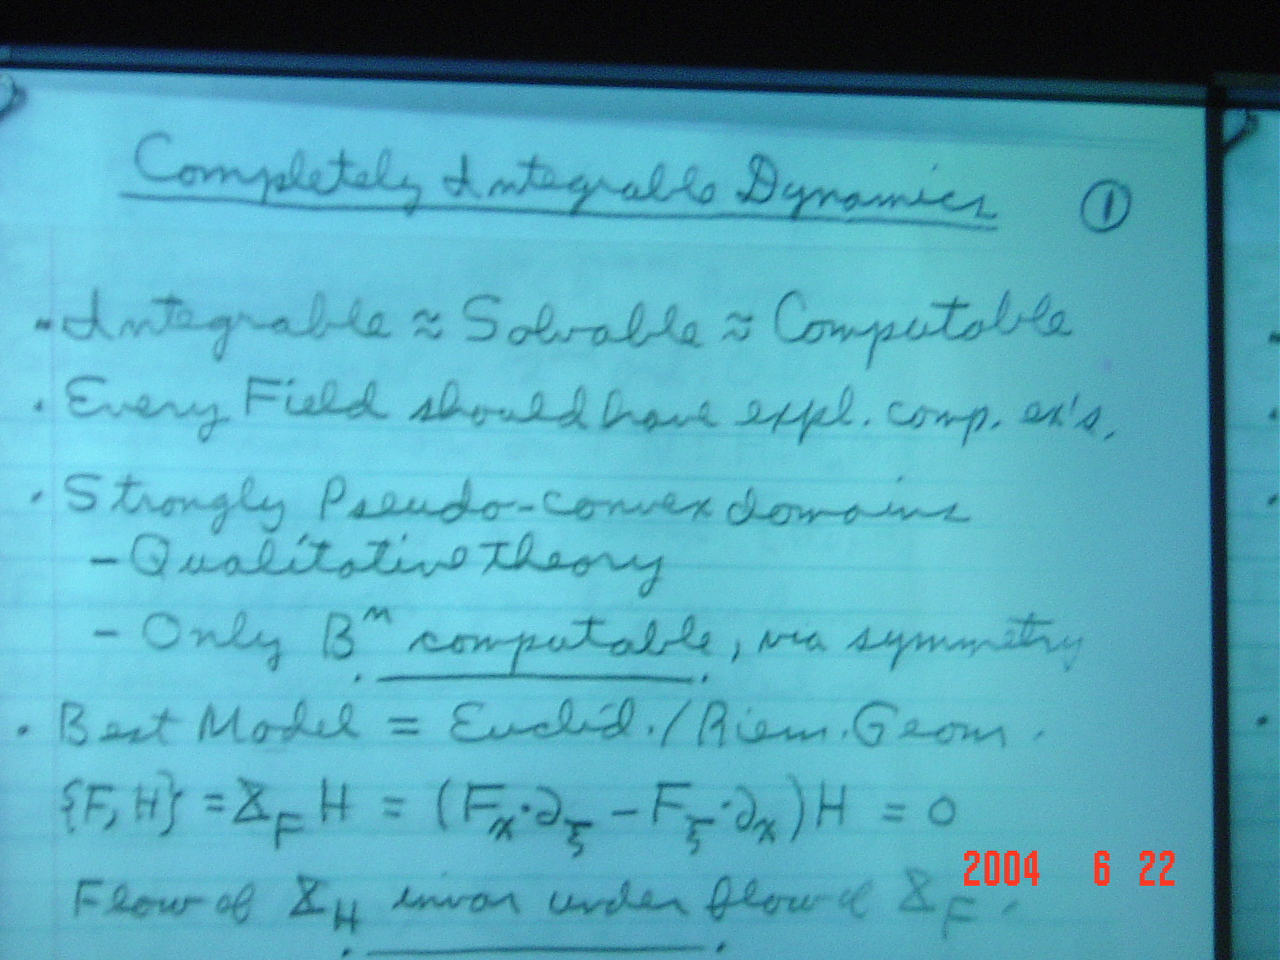 Completely Integrable Dynamics ①
• Integrable ≈ Solvable ≈ Computable
• Every Field should have expl. comp. ex's.
• Strongly Pseudo-convex domains
- Qualitative theory
- Only Bⁿ computable, via symmetry
• Best Model = Euclid./Riem. Geom.
{F,H} = X_F H = (F_x·∂_ξ - F_ξ·∂_x)H = 0
2004 6 22
Flow of X_H invar under flow of X_F.